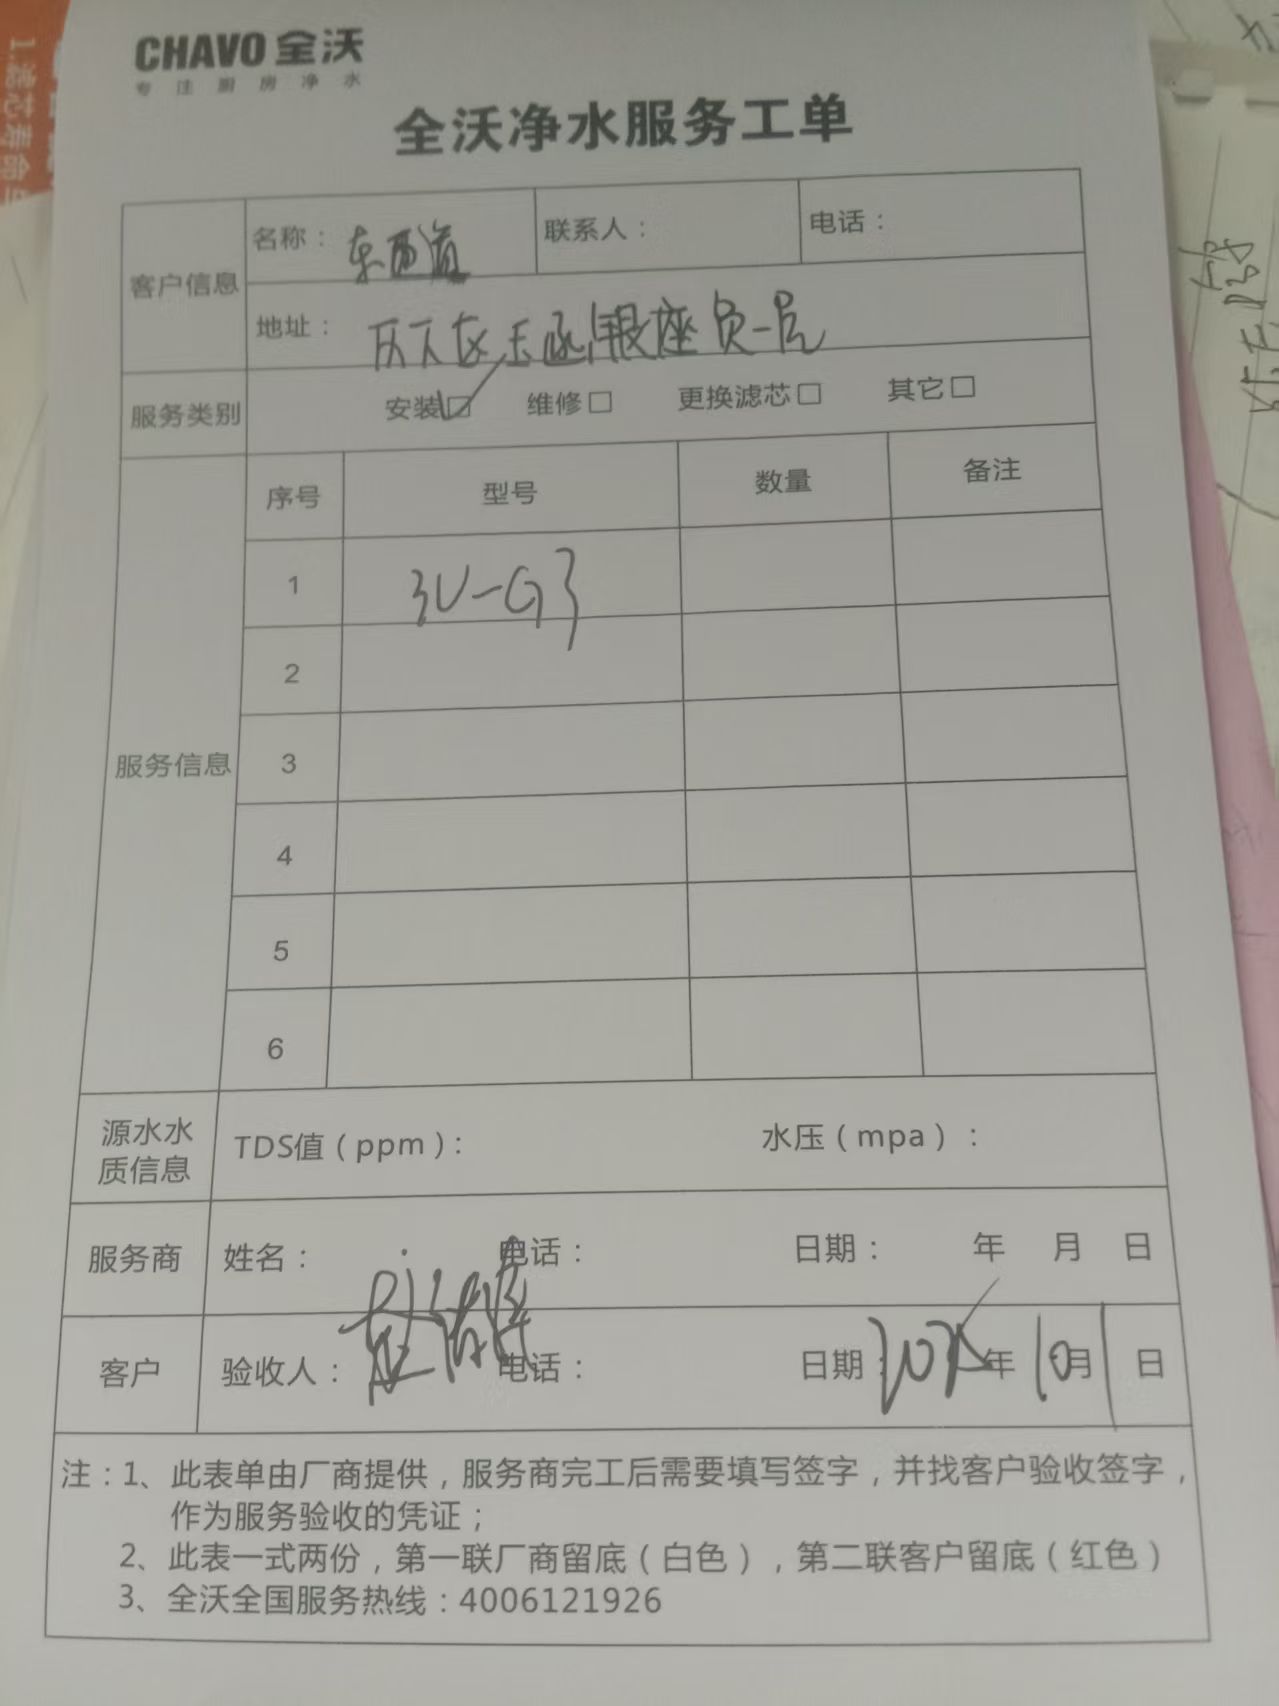 CHAVO 全沃
专注厨房净水
全沃净水服务工单
客户信息
名称：东西道
联系人：
电话：
地址：历下区玉函银座负一层
服务类别
安装☑ 维修□ 更换滤芯□ 其它□
服务信息
序号 型号 数量 备注
1 3U-G3
2
3
4
5
6
源水水质信息
TDS值（ppm）： 水压（mpa）：
服务商 姓名： 电话： 日期： 年 月 日
客户 验收人： 电话： 日期： 年10月1日
注：1、此表单由厂商提供，服务商完工后需要填写签字，并找客户验收签字，
作为服务验收的凭证；
2、此表一式两份，第一联厂商留底（白色），第二联客户留底（红色）
3、全沃全国服务热线：4006121926
1.滤芯寿命